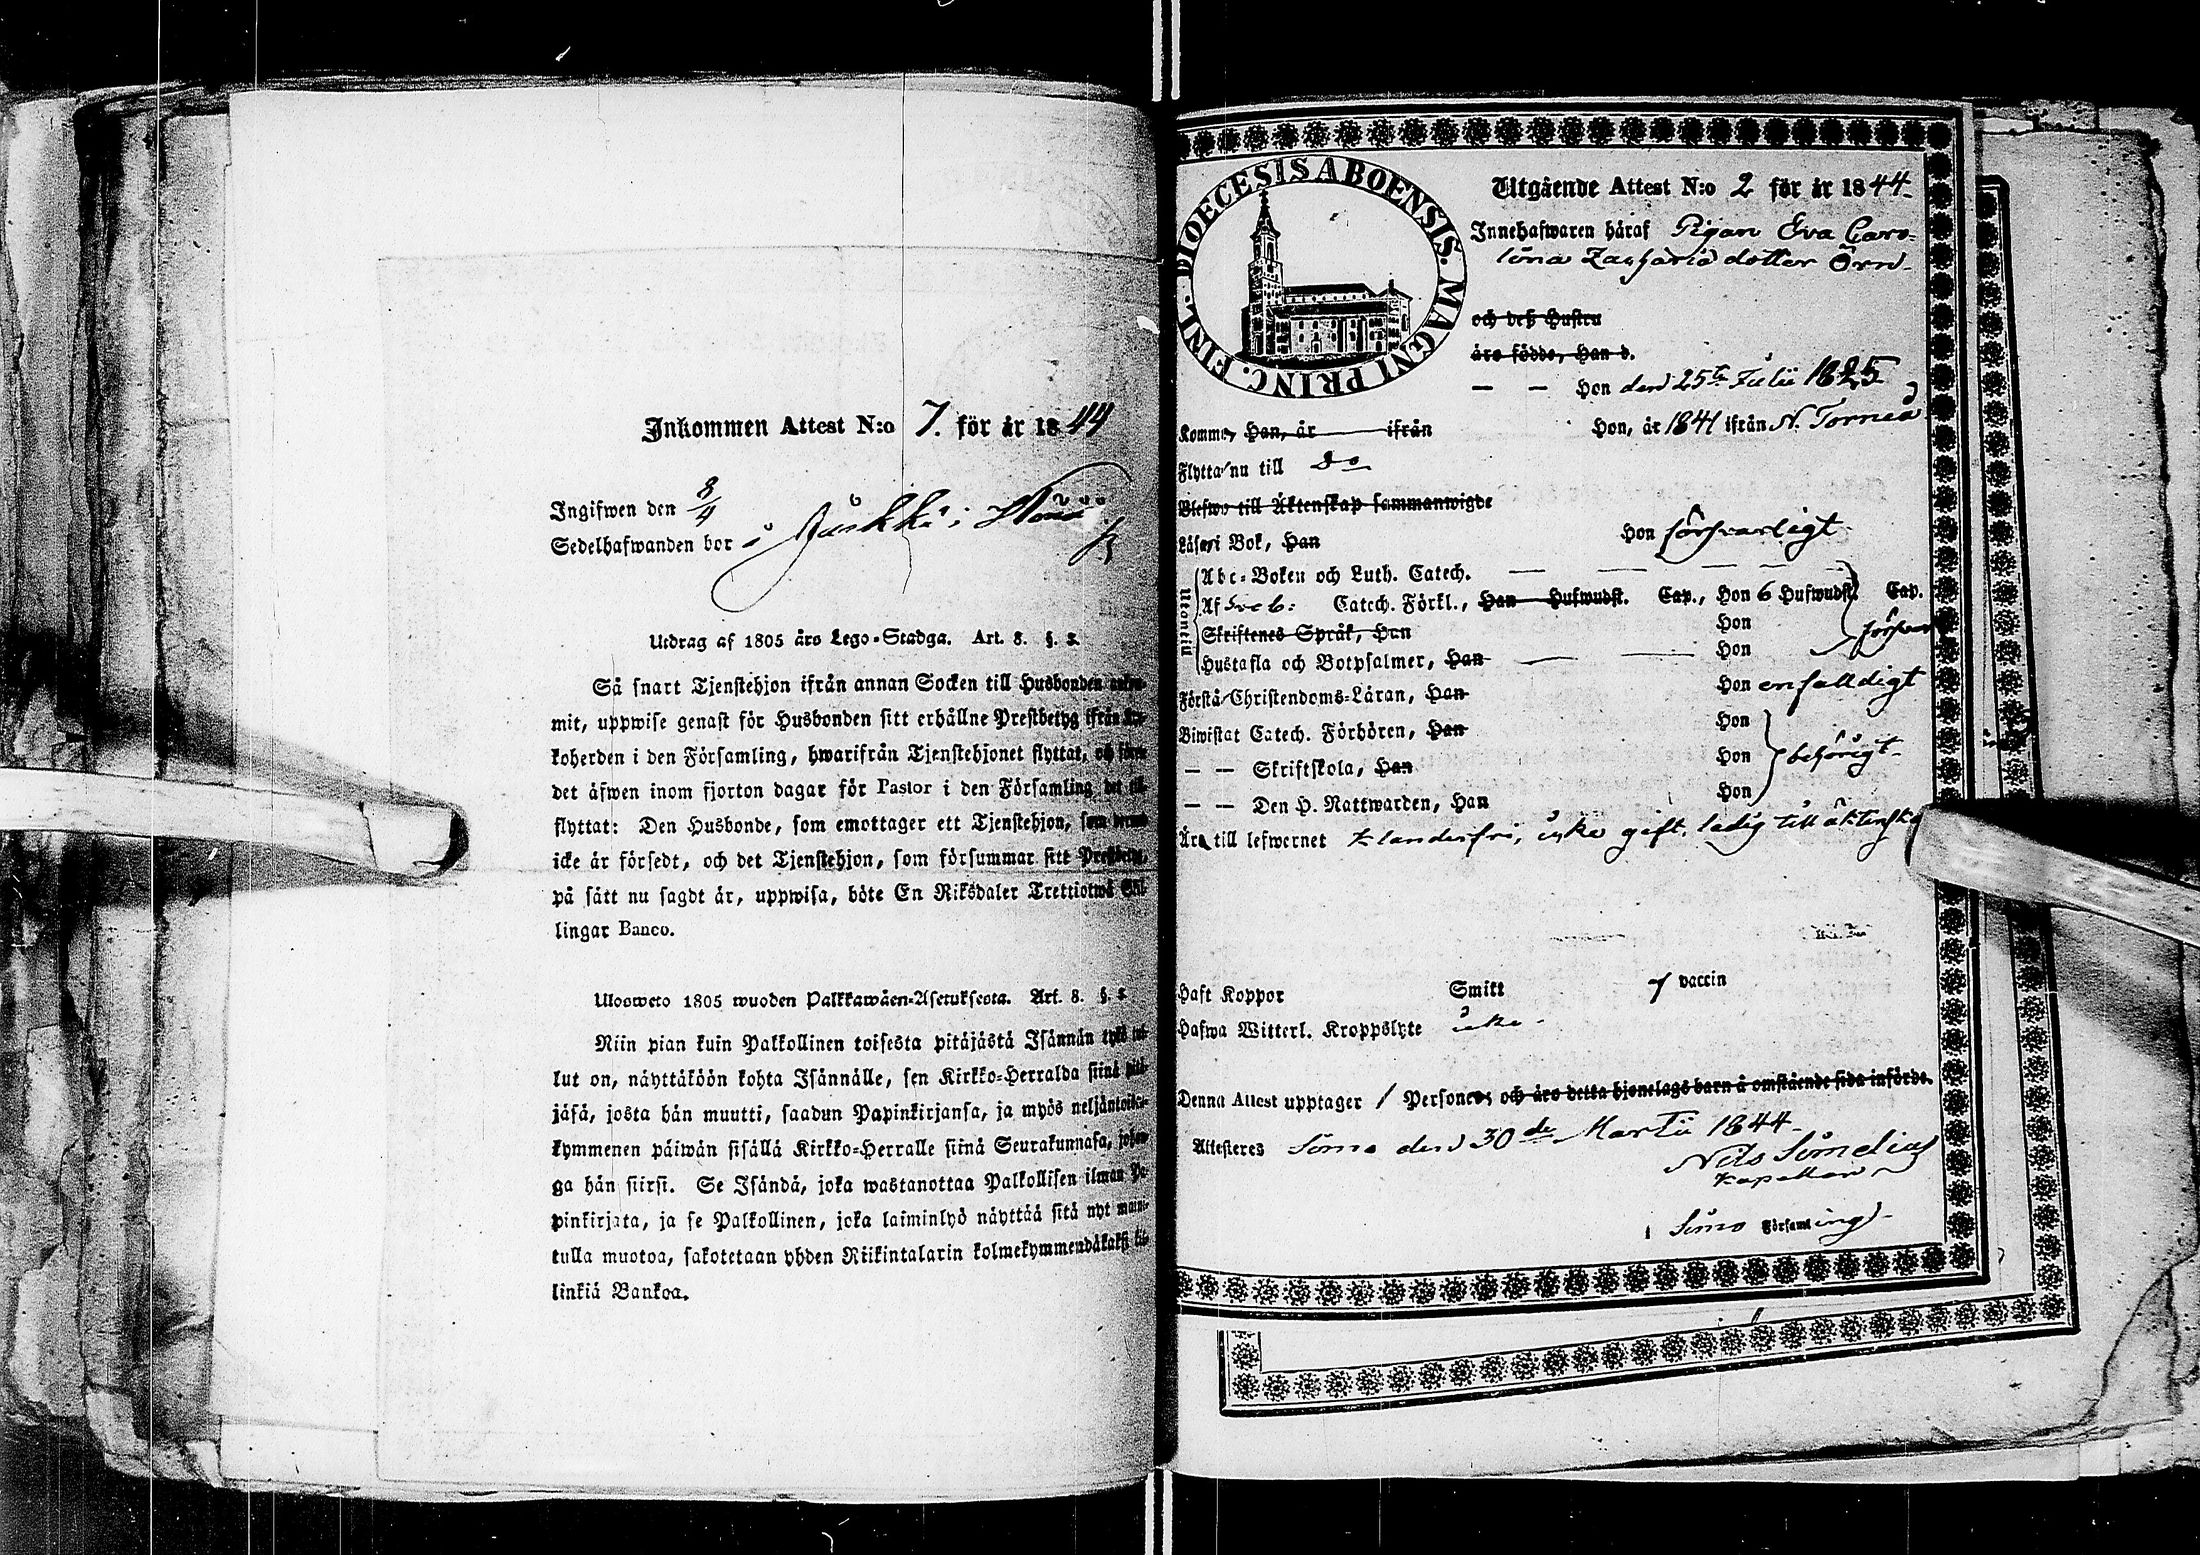 Inkommen Attest N:o 7. för år 1844
Ingifwen den 8/4
Sedelhafwanden bor i Juskki i
Utdrag af 1805 års Lego-Stadga. Art. 8. §. 3.
Så snart Tjenstehjon ifrån annan Socken till Husbonden
mit, uppwise genast för Husbonden sitt erhållne Prestbetyg ifrån
koherden i den Församling, hwarifrån Tjenstehjonet flyttat, och
det äfwen inom fjorton dagar för Pastor i den Församling det
flyttat: Den Husbonde, som emottager ett Tjenstehjon, som
icke är försedt, och det Tjenstehjon, som försummar sitt
på sätt nu sagdt är, uppwisa, böte En Riksdaler Trettiotwå
lingar Banco.
Uloswetö 1805 wuoden Palkkawäen-Asetuksesta. Art. 8. §. 3
Niin pian kuin Palkollinen toisesta pitäjästä Isännän tykö
lut on, näyttäköön kohta Isännälle, sen Kirkko-Herralda siinä
jäsä, josta hän muutti, saadun Papinkirjansa, ja myös neljäntoista-
kymmenen päiwän sisällä Kirkko-Herralle siinä Seurakunnasa,
ga hän siirsi. Se Isändä, joka wastanottaa Palkollisen ilman Pa-
pinkirjata, ja se Palkollinen, joka laiminlyö näyttää sitä nyt
tulla muotoa, sakotetaan yhden Riikintalarin kolmekymmendäkaksi
linkiä Bankoa.
DIOECESIS ABOENSIS. MAGNI PRINC. FINL.
Utgående Attest N:o 2 för år 1844
Innehafwaren häraf Pigan Eva Caro-
lina Zachariæ dotter Örn
och deß Hustru
äro födde, Han d.
— — Hon den 25te Julii 1825
Komme, Han, år ifrån Hon, år 1841 ifrån N. Torneå
Flytta nu till do
Blefwo till Äktenskap sammanwigde
Läser i Bok, Han Hon försvarligt
Utontill
Abc-Boken och Luth. Catech.
Af Sveb: Catech. Förkl., Han Hufwudst. Cap., Hon 6 Hufwudst. Cap.
Skriftenes Språk, Han Hon
Hustafla och Botpsalmer, Han Hon
Förstå Christendoms-Läran, Han Hon enfalldigt
Biwistat Catech. Förhören, Han Hon
— — Skriftskola, Han Hon behörigt
— — Den H. Nattwarden, Han Hon
Äro till lefwernet klanderfri, icke gift, ledig till äktenska
Haft Koppor Smitt 1 vaccin
Hafwa Witterl. Kroppslyte icke
Denna Attest upptager 1 Personer och äro detta hjonelags barn å omstående sida införde.
Attesteres Simo den 30de Martii 1844
Nils Simelius
Kapellan
i Simo Församling